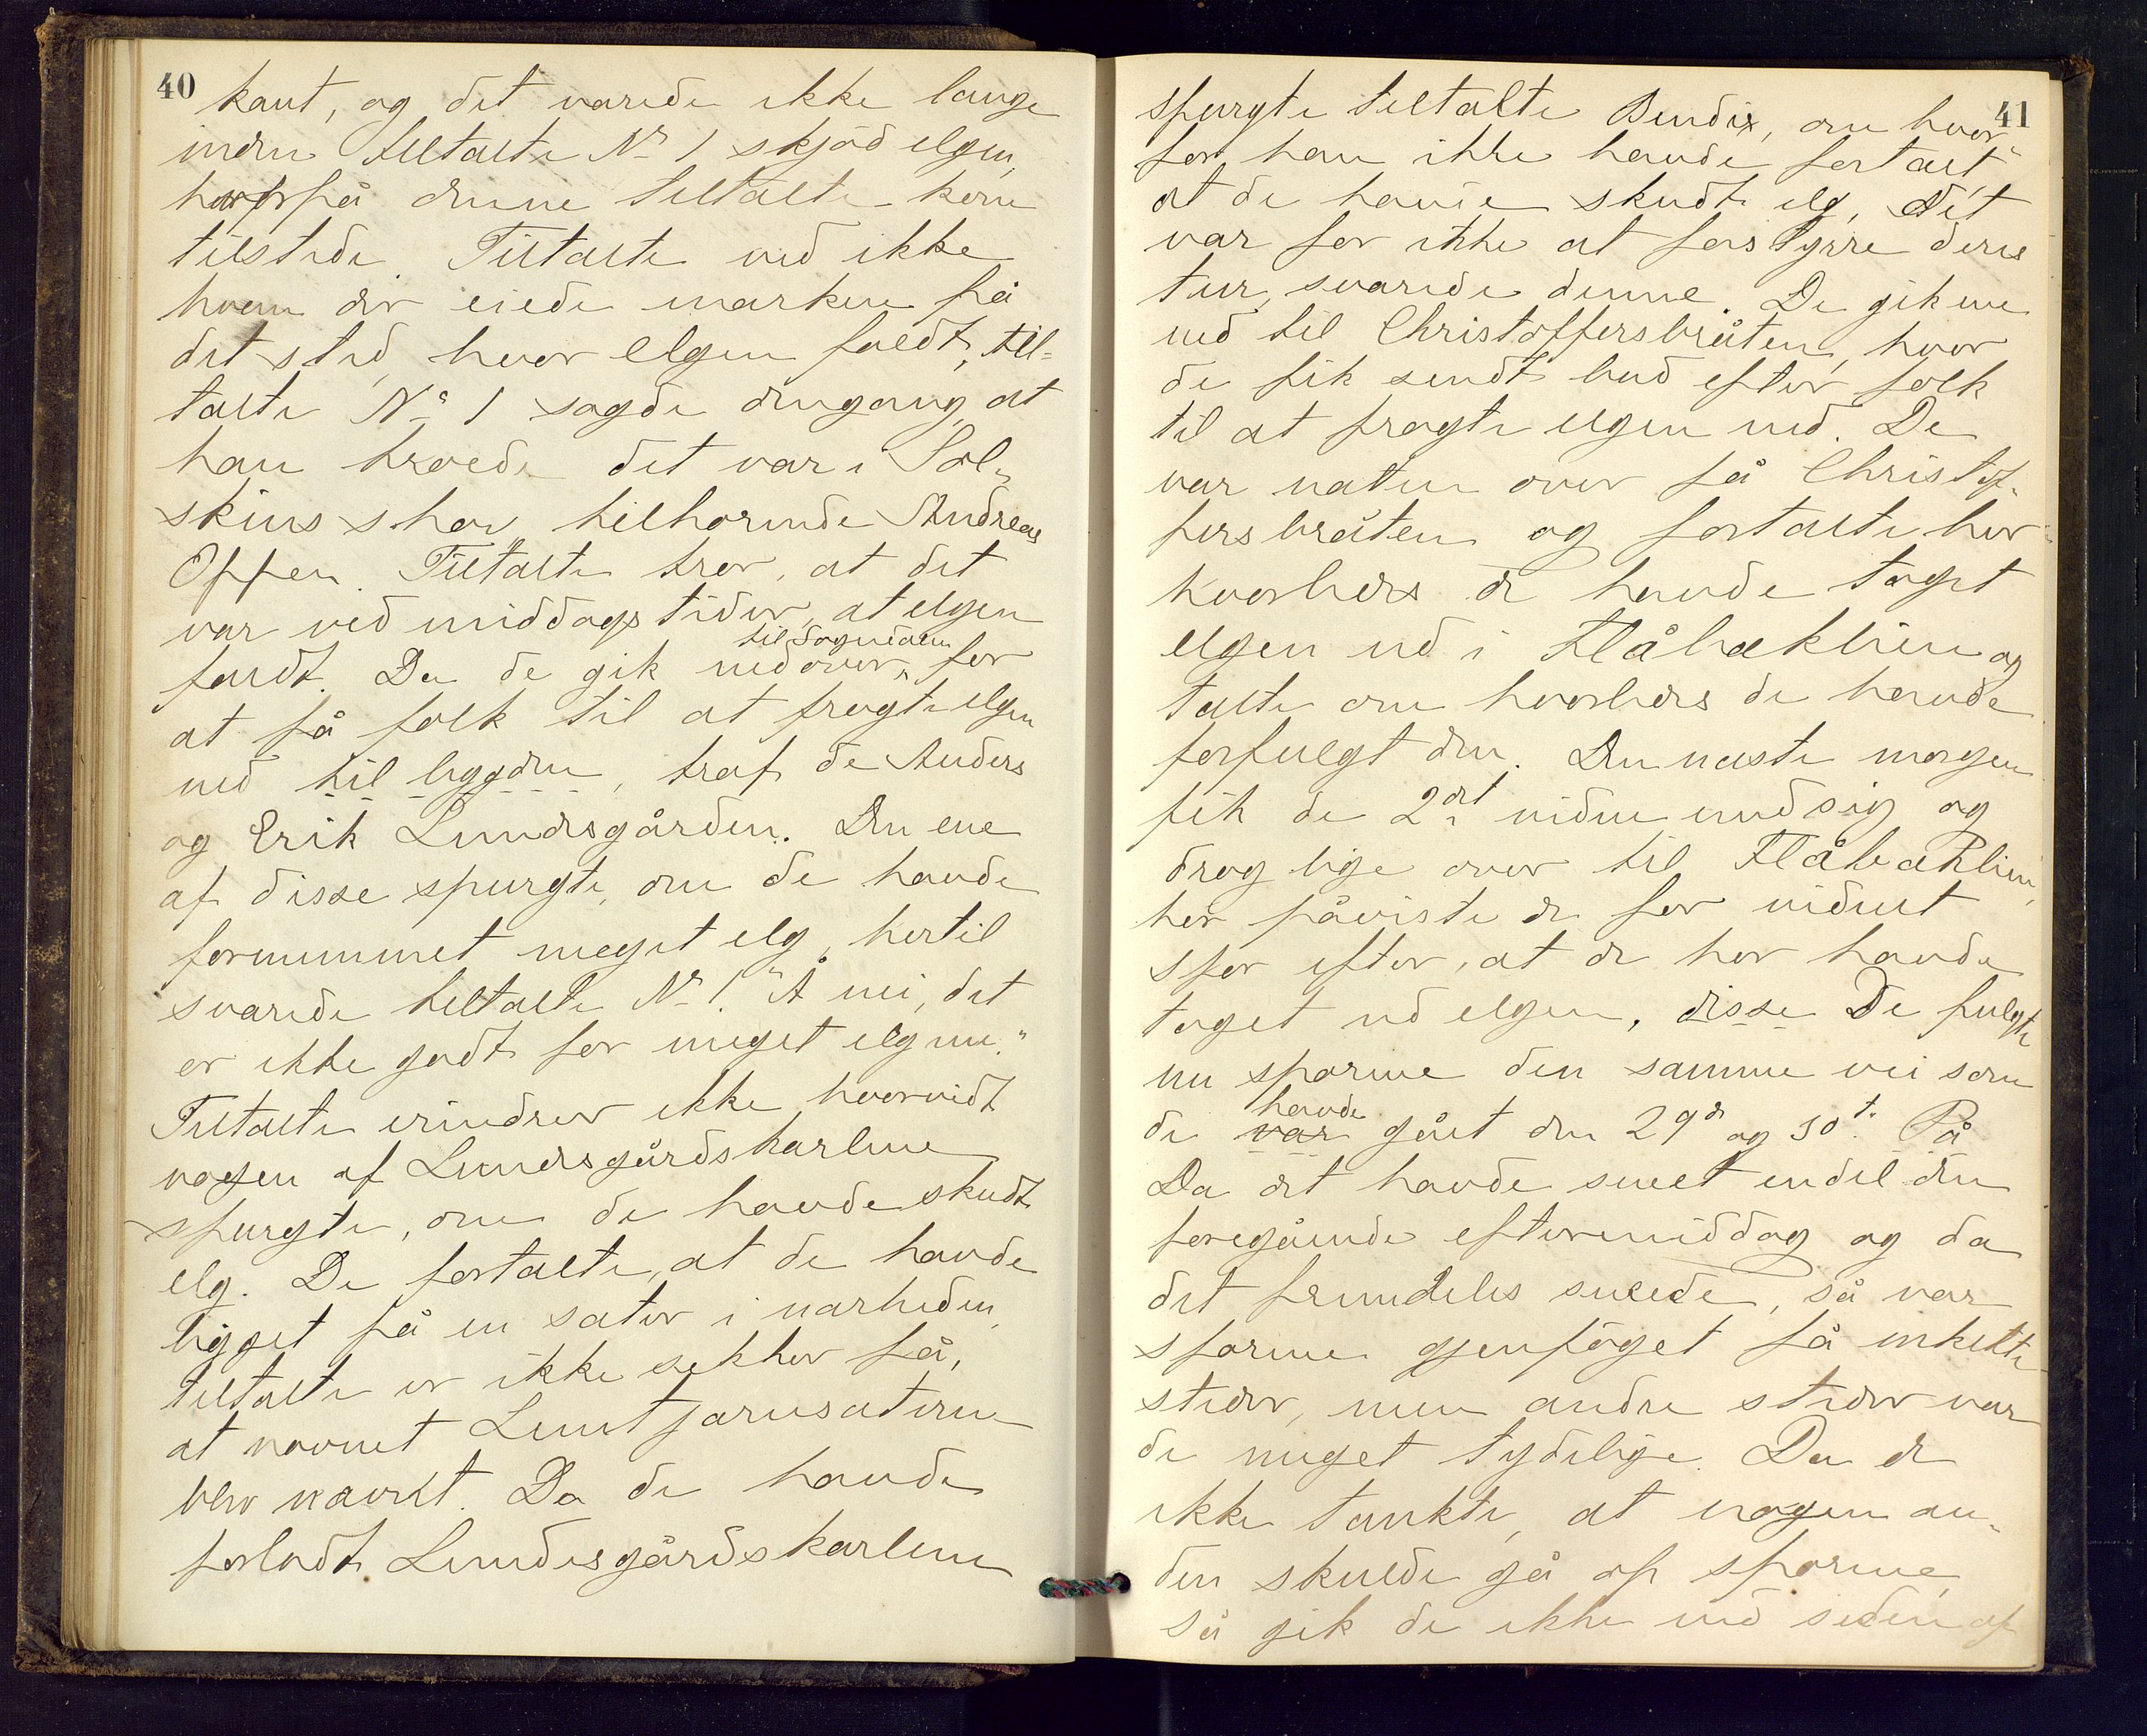 40
kant, og det varede ikke længe
inden tiltalte No 1 skjød elgen,
hvorpå denne tiltalte kom
tilstede. Tiltalte ved ikke
hvem der eiede marken på
det sted, hvor elgen faldt, til-
talte No 1 sagde dengang, at
han troede det var i Sol-
skins skov, tilhørende Andreas
Oppen. Tiltalte tror, at det
var ved middags tider, at elgen
til Sognedalen
faldt. Da de gik nedover, for
at få folk til at fragte elgen
ned til bygden, traf de Anders
og Erik Lundesgården. Den ene
af disse spurgte, om de havde
fornummet meget elg, hertil
svarede tiltalte No 1. "Å nei, det
er ikke godt for meget elg nu."
Tiltalte erindrer ikke, hvorvidt
nogen af Lundesgårdskarlene
spurgte, om de havde skudt
elg. De fortalte, at de havde
ligget på en sæter i nærheden,
tiltalte er ikke sikker på,
at navnet Lunstjærnsæteren
blev nævnt. Da de havde
forladt Lundesgårdskarlene
41
spurgte tiltalte Bendix, om hvor-
for han ikke havde fortalt
at de havde skudt elg, det
var for ikke at forstyrre deres
tur, svarede denne. De gik nu
ned til Christoffersbråten, hvor
de fik sendt bud efter folk
til at fragte elgen ned. De
var natten over på Christof-
fersbråten og fortalte her
hvorledes de havde taget
elgen ud i Flåbæklien og
talte om hvorledes de havde
forfulgt den. Den næste morgen
fik de 2det vidne med sig og
drog lige over til Flåbæklien,
her påviste de for vidnet
spor efter, at de her havde
taget ud elgen, disse De fulgte
nu sporene den samme vei som
havde
de var gået den 29de og 30te. På
Da det havde sneet endel den
foregående eftermiddag og da
det fremdeles sneede, så var
sporene gjenføget på enkelte
steder, men andre steder var
de meget tydelige. Da de
ikke tænkte, at nogen an-
den skulde gå op sporene,
så gik de ikke ved siden af